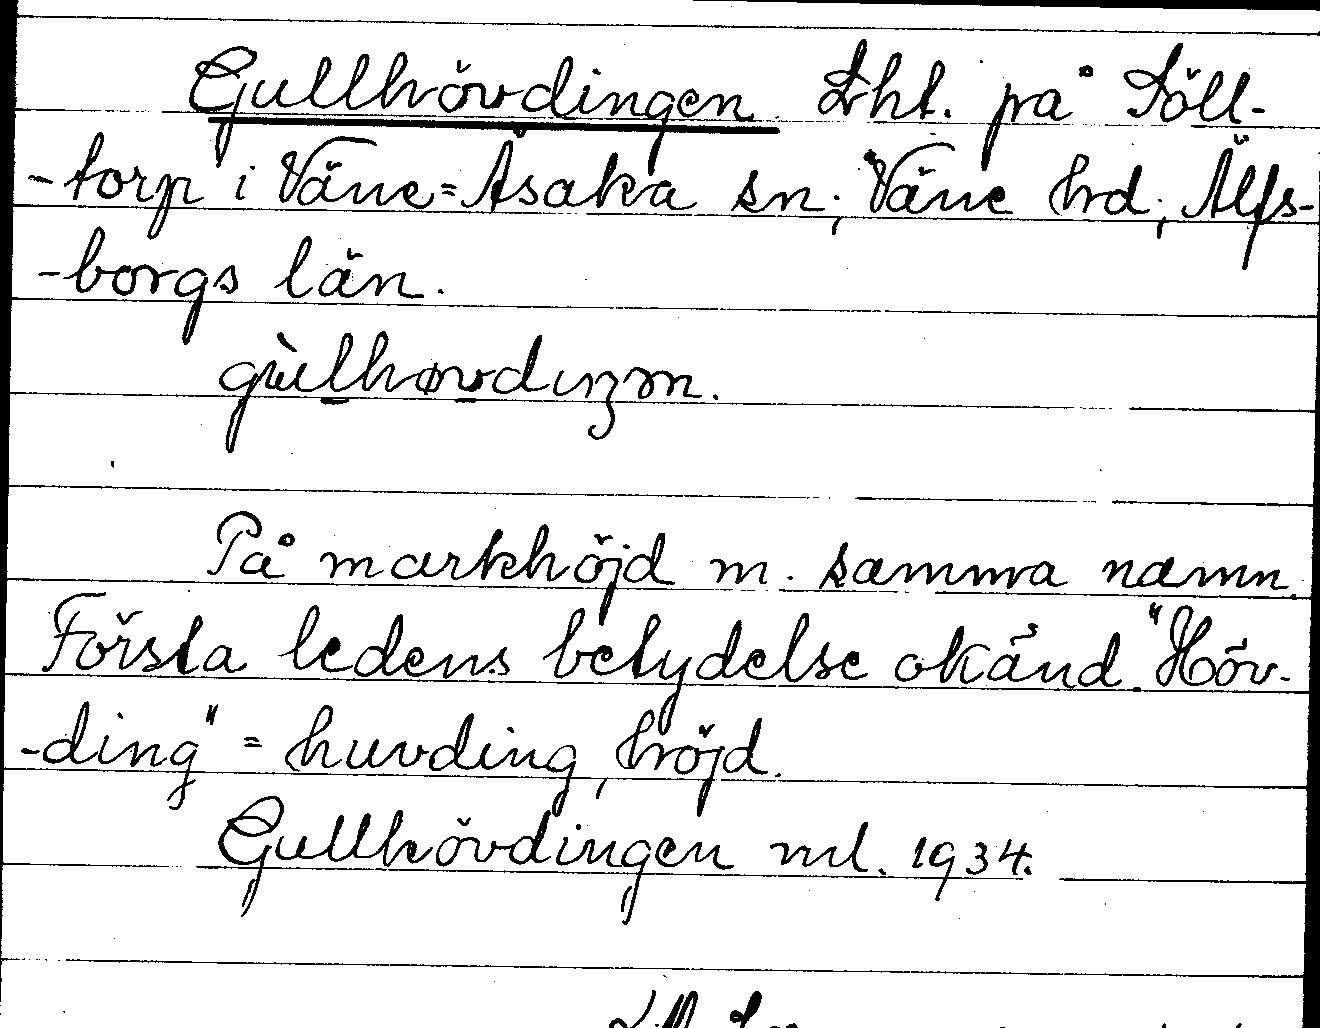 Gullhövdingen. Lht. på Söll-
-torp i Väne=Åsaka sn; Väne hrd; Älfs-
-borgs län.
gùlhøvdıŋən.
På markhöjd m. samma namn.
Första ledens betydelse okänd. "Höv-
-ding" = huvding, höjd.
Gullhövdingen ml. 1934.